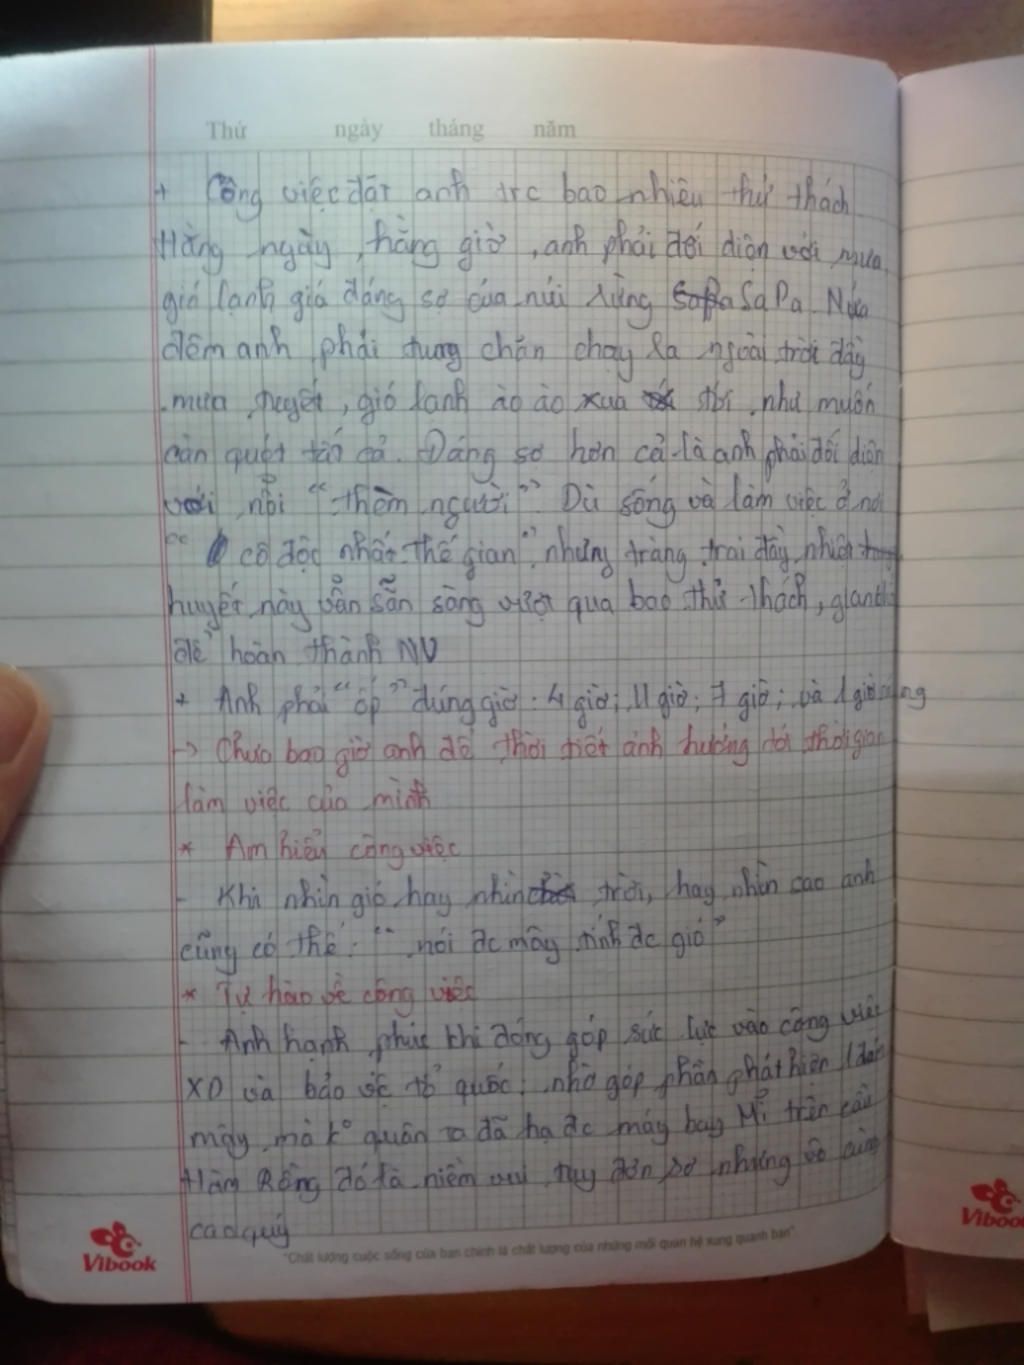 Thứ ngày tháng năm
+ Công việc đặt anh trc bao nhiêu thử thách
Hằng ngày, hằng giờ, anh phải đối diện với mưa
gió lạnh giá đáng sợ của núi rừng SaPa. Nửa
đêm anh phải tung chăn chạy ra ngoài trời đầy
mưa tuyết, gió lạnh ào ào xua tới, như muốn
càn quét tất cả. Đáng sợ hơn cả là anh phải đối diện
với nỗi "thèm người". Dù sống và làm việc ở nơi
"cô độc nhất thế gian", nhưng tràng trai đầy nhiệt
huyết này vẫn sẵn sàng vượt qua bao thử thách,
để hoàn thành NV
+ Anh phải "ốp" đúng giờ: 4 giờ; 11 giờ; 7 giờ; và 1 giờ sáng
-> Chưa bao giờ anh để thời tiết ảnh hưởng tới thời gian
làm việc của mình
* Am hiểu công việc
- Khi nhìn gió hay nhìn trời, hay nhìn sao anh
cũng có thể: "nói đc mây tính đc gió"
* Tự hào về công việc
- Anh hạnh phúc khi đóng góp sức lực vào công việc
XD và bảo vệ tổ quốc: nhờ góp phần phát hiện 1 đám
mây mà k° quân ta đã hạ đc máy bay Mĩ trên cầu
Hàm Rồng đó là niềm vui tuy đơn sơ nhưng vô cùng
cao quý
"Chất lượng cuộc sống của bạn chính là chất lượng của những mối quan hệ xung quanh bạn"
Vibook
Vibook